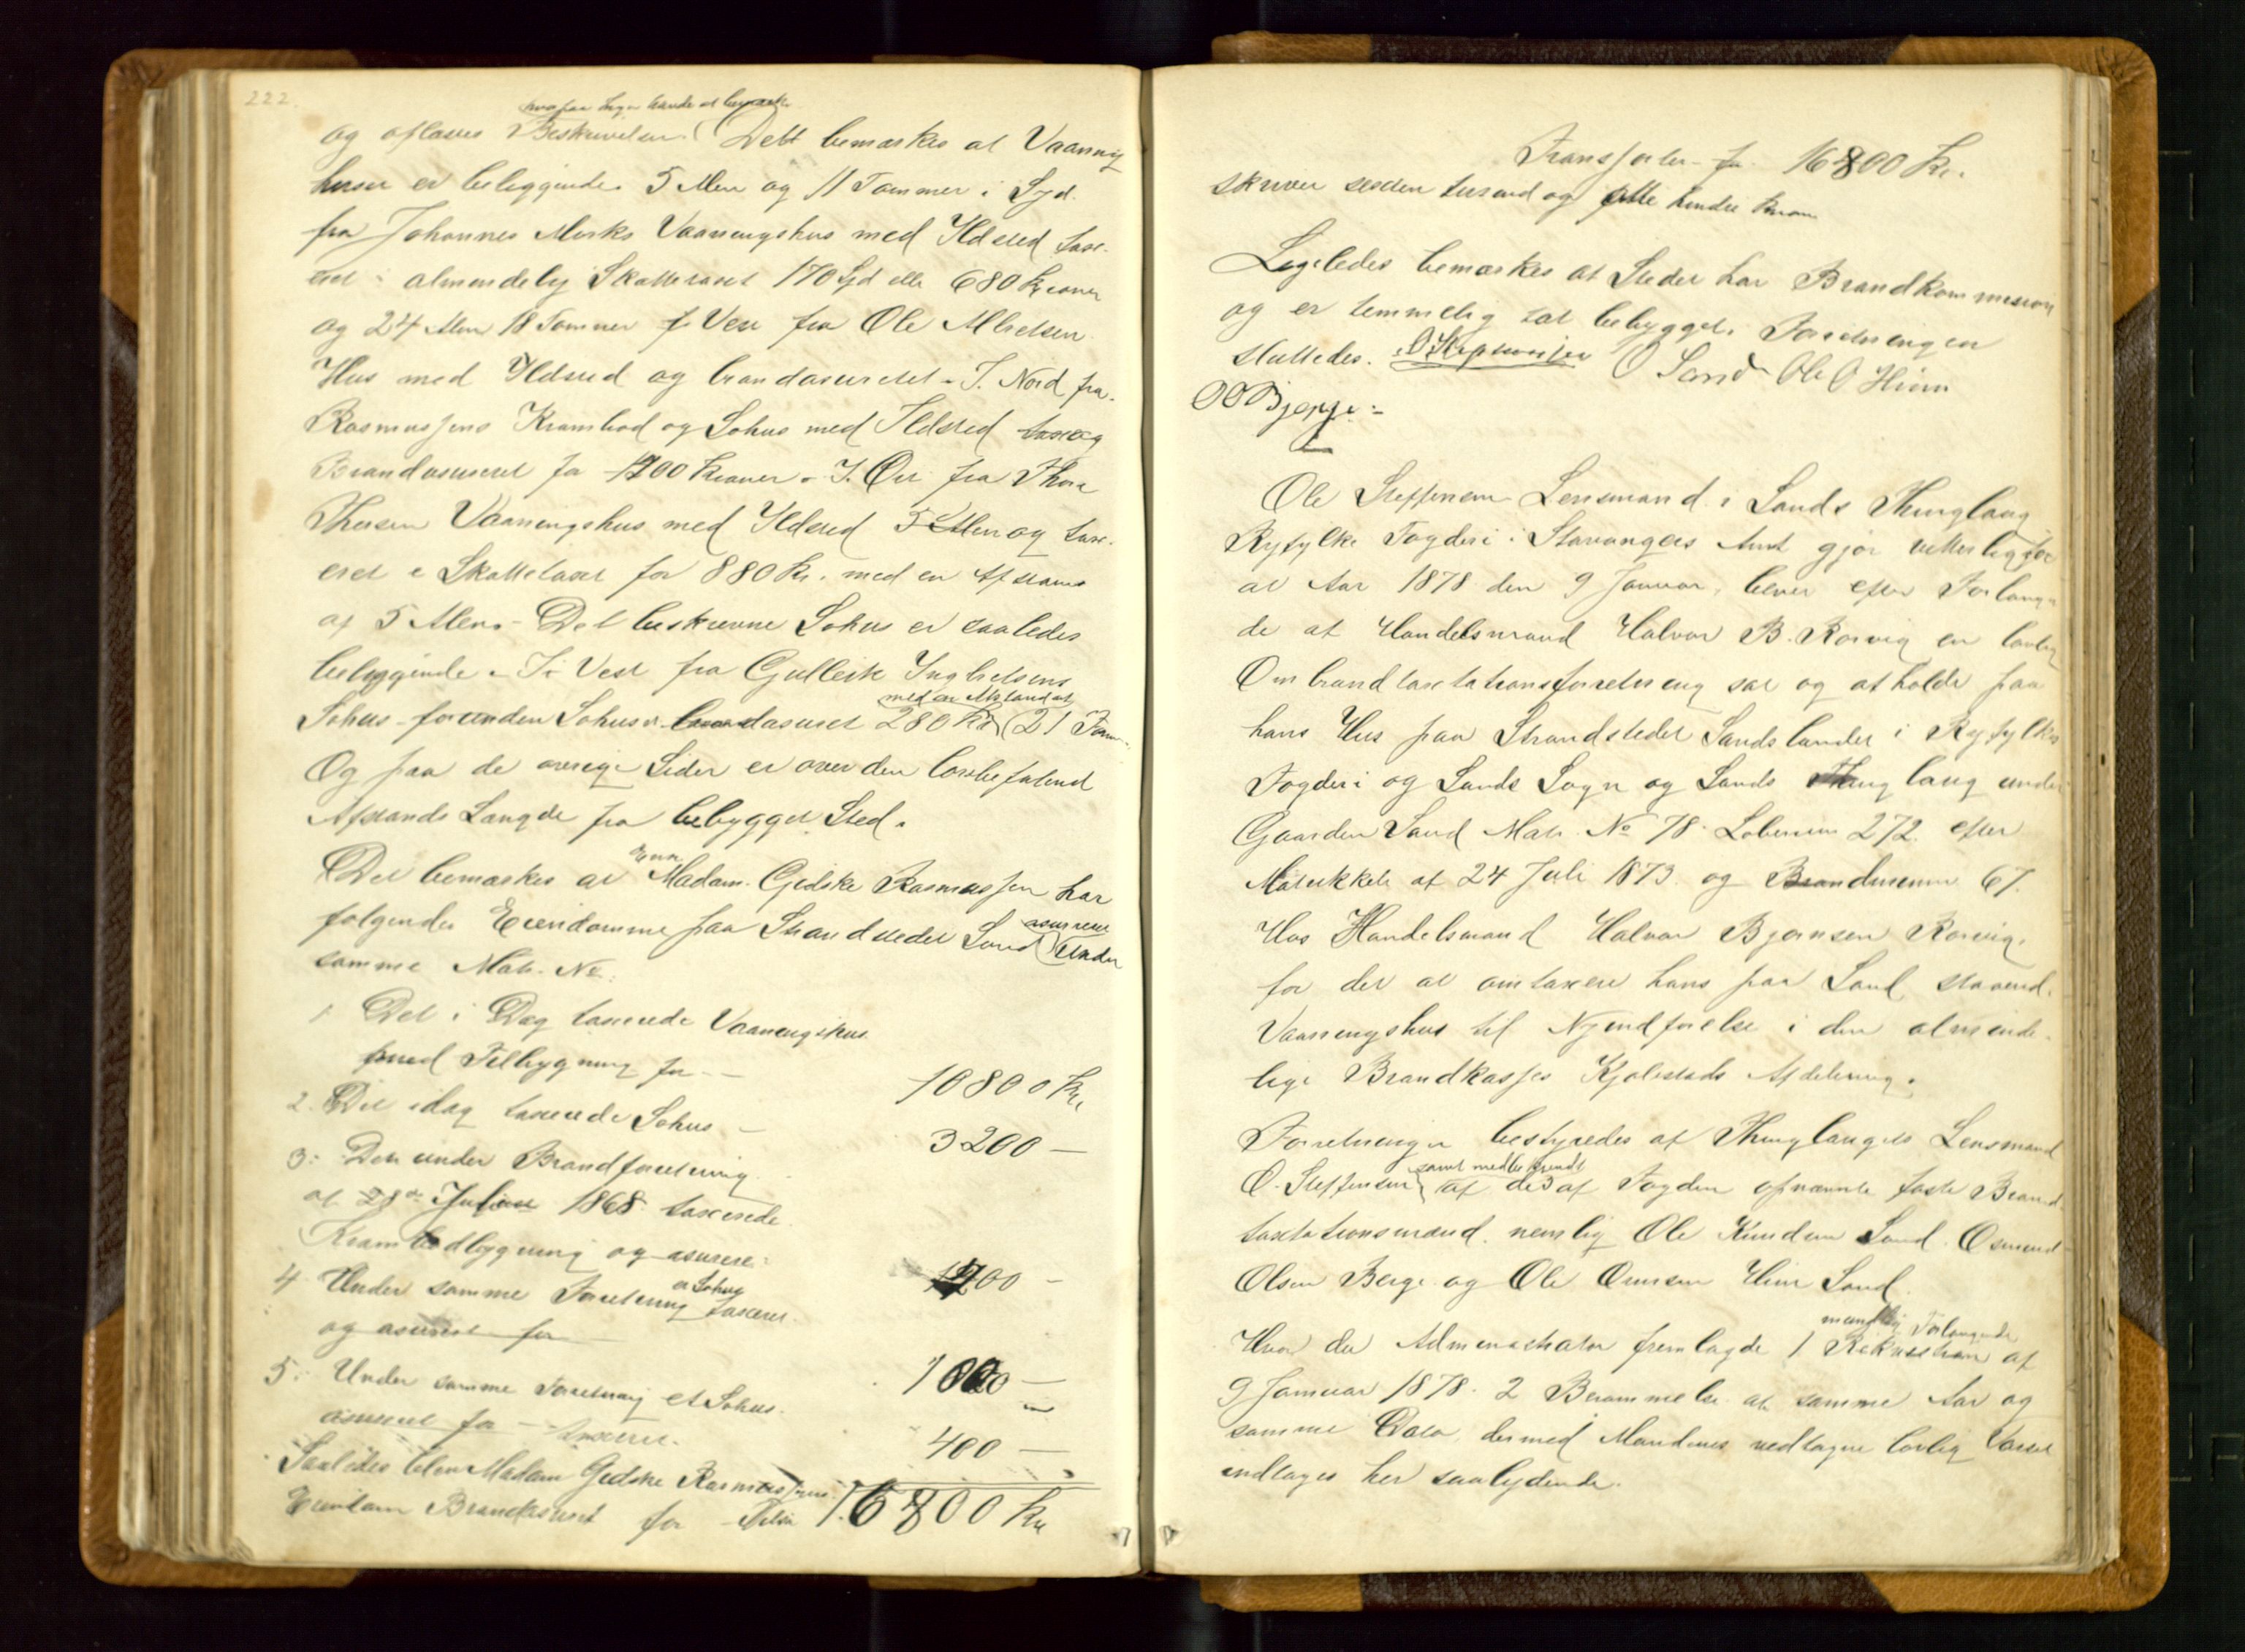 222.
hvorpaa Ingen havde at bemærke
og oplæses Beskrivelsen. Dett bemærkes at Vaanings
huset er beliggende 5 Alen og 11 Tommer i Syd
fra Johannes Mosks Vaaningshus med Ildsted taxe-
ret i almindelig Skattetaxt 170 Spd eller 680 Kroner
og 24 Alen 18 Tommer i Vest fra Ole
Hus med Ildsted og brandasureret - I. Nord fra
Rasmussens Krambod og Søhus med Ildsted taxe og
Brandasureret for 1200 Kroner - I. Øst fra Thore
Thorsen Vaaningshus med Ildsted 5 Alen og taxe-
eret i Skattetaxt for 880 Kr. med en Afstand
af 5 Alen - Det beskrevne Søhus er saaledes
beliggende - I Vest fra Gulleik Ingbretsens
med en Afstand af
Søhus - Søhus er brandasureret 280 Kr (21 Tom
Og paa de øvrige Sider er over den lovbefalende
Afstands Længde fra bebygget Sted.
Enke
Det bemærkes at Madam Gidske Rasmussen har
asurerede
følgende Eiendomme paa Strandstedet Sand (under
samme Matr. No.
1 Det i Dag taxerede Vaaningshus
med Tilbygning for -
10800 Kr.
2. Det idag taxerede Søhus -
3200 -
3. Den under Brandforretning
af 28de 1868 taxerede
Krambodbygning og asurere
1200 -
4 Under samme Forretning et Søhus taxeret
og asureret for
1000 -
5. Under samme Forretning et Søhus
asureret for - taxeret.
400 -
Saaledes bliver Madam Gidske Rasmussens
Eiendom Brandasureret for 16800 Kr
Transporter for 16800 Kr.
skriver sexten tusend og otte hundre Kroner
Ligeledes bemærkes at Stedet har Brandkommission
og er temmelig tæt bebygget. Forretningen
sluttedes. O Steffensen O Sand Ole O Hiim
O O Bjerge.
Ole Steffensen Lensmand i Sands Thinglaug
Ryfylke Fogderi i Stavanger Amt gjør vitterligt for
at Aar 1878 den 9 Januar, blever efter Forlang-
de af Handelsmand Halvor B. Rørvig en lovlig
Ombrandtaxtationsforretning sat og afholdt paa
hans Hus paa Strandstedet Sandslandet i Ryfylke
Fogderi og Sands Sogn og Sands Thinglaug under
Gaarden Sand Matr. No 78 Løbenum 272 efter
Matrikkele af 24 Juli 1873 og Brandnumer 67.
Hos Handelsmand Halvor Bjørnsen Rørvig,
for det at omtaxere hans paa Sand staaend.
Vaaningshus til Nyindførelse i den alminde-
lige Brandkasses Kjøbstads Afdelning.
Forretningen bestyredes af Thinglaugets Lensmand
samt
O. Steffensen af de 3 af Fogden opnævnte faste Brand
taxtationsmænd, nemlig Ole Knudsen Sand. Osmund
Olsen Berge og Ole Omsen Hiim Sand.
mundtlig Forlangende
Hvor da Administrator fremlagde 1 Rekvisition af
9 Januar 1878. 2 Berammelse af samme Aar og
samme Dato, dermed Mændenes vedtagne lovlig Varsel
indtages her saalydende.